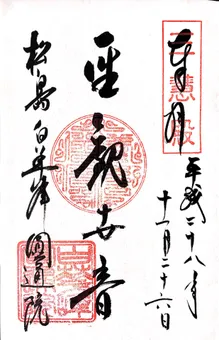 奉拝
三慧殿
平成二十八年
十一月二十六日
聖観世音
松島白華峰 圓通院